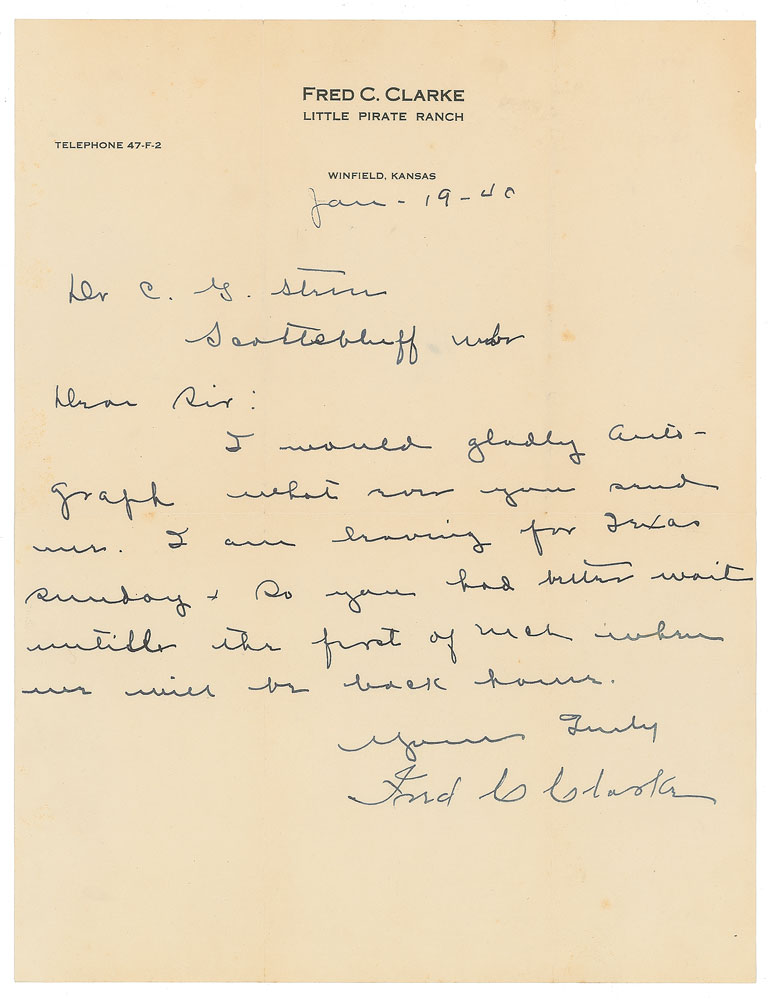 FRED C. CLARKE
LITTLE PIRATE RANCH
TELEPHONE 47-F-2
WINFIELD, KANSAS
Jan - 19 - 40
Dr C. G.
Scottsbluff Nebr
Dear Sir:
I would gladly Auto-
graph what ever you send
me. I am leaving for Texas
Sunday + So you had better wait
untill the first of Mch when
we will be back home.
Yours Truly
Fred C Clarke